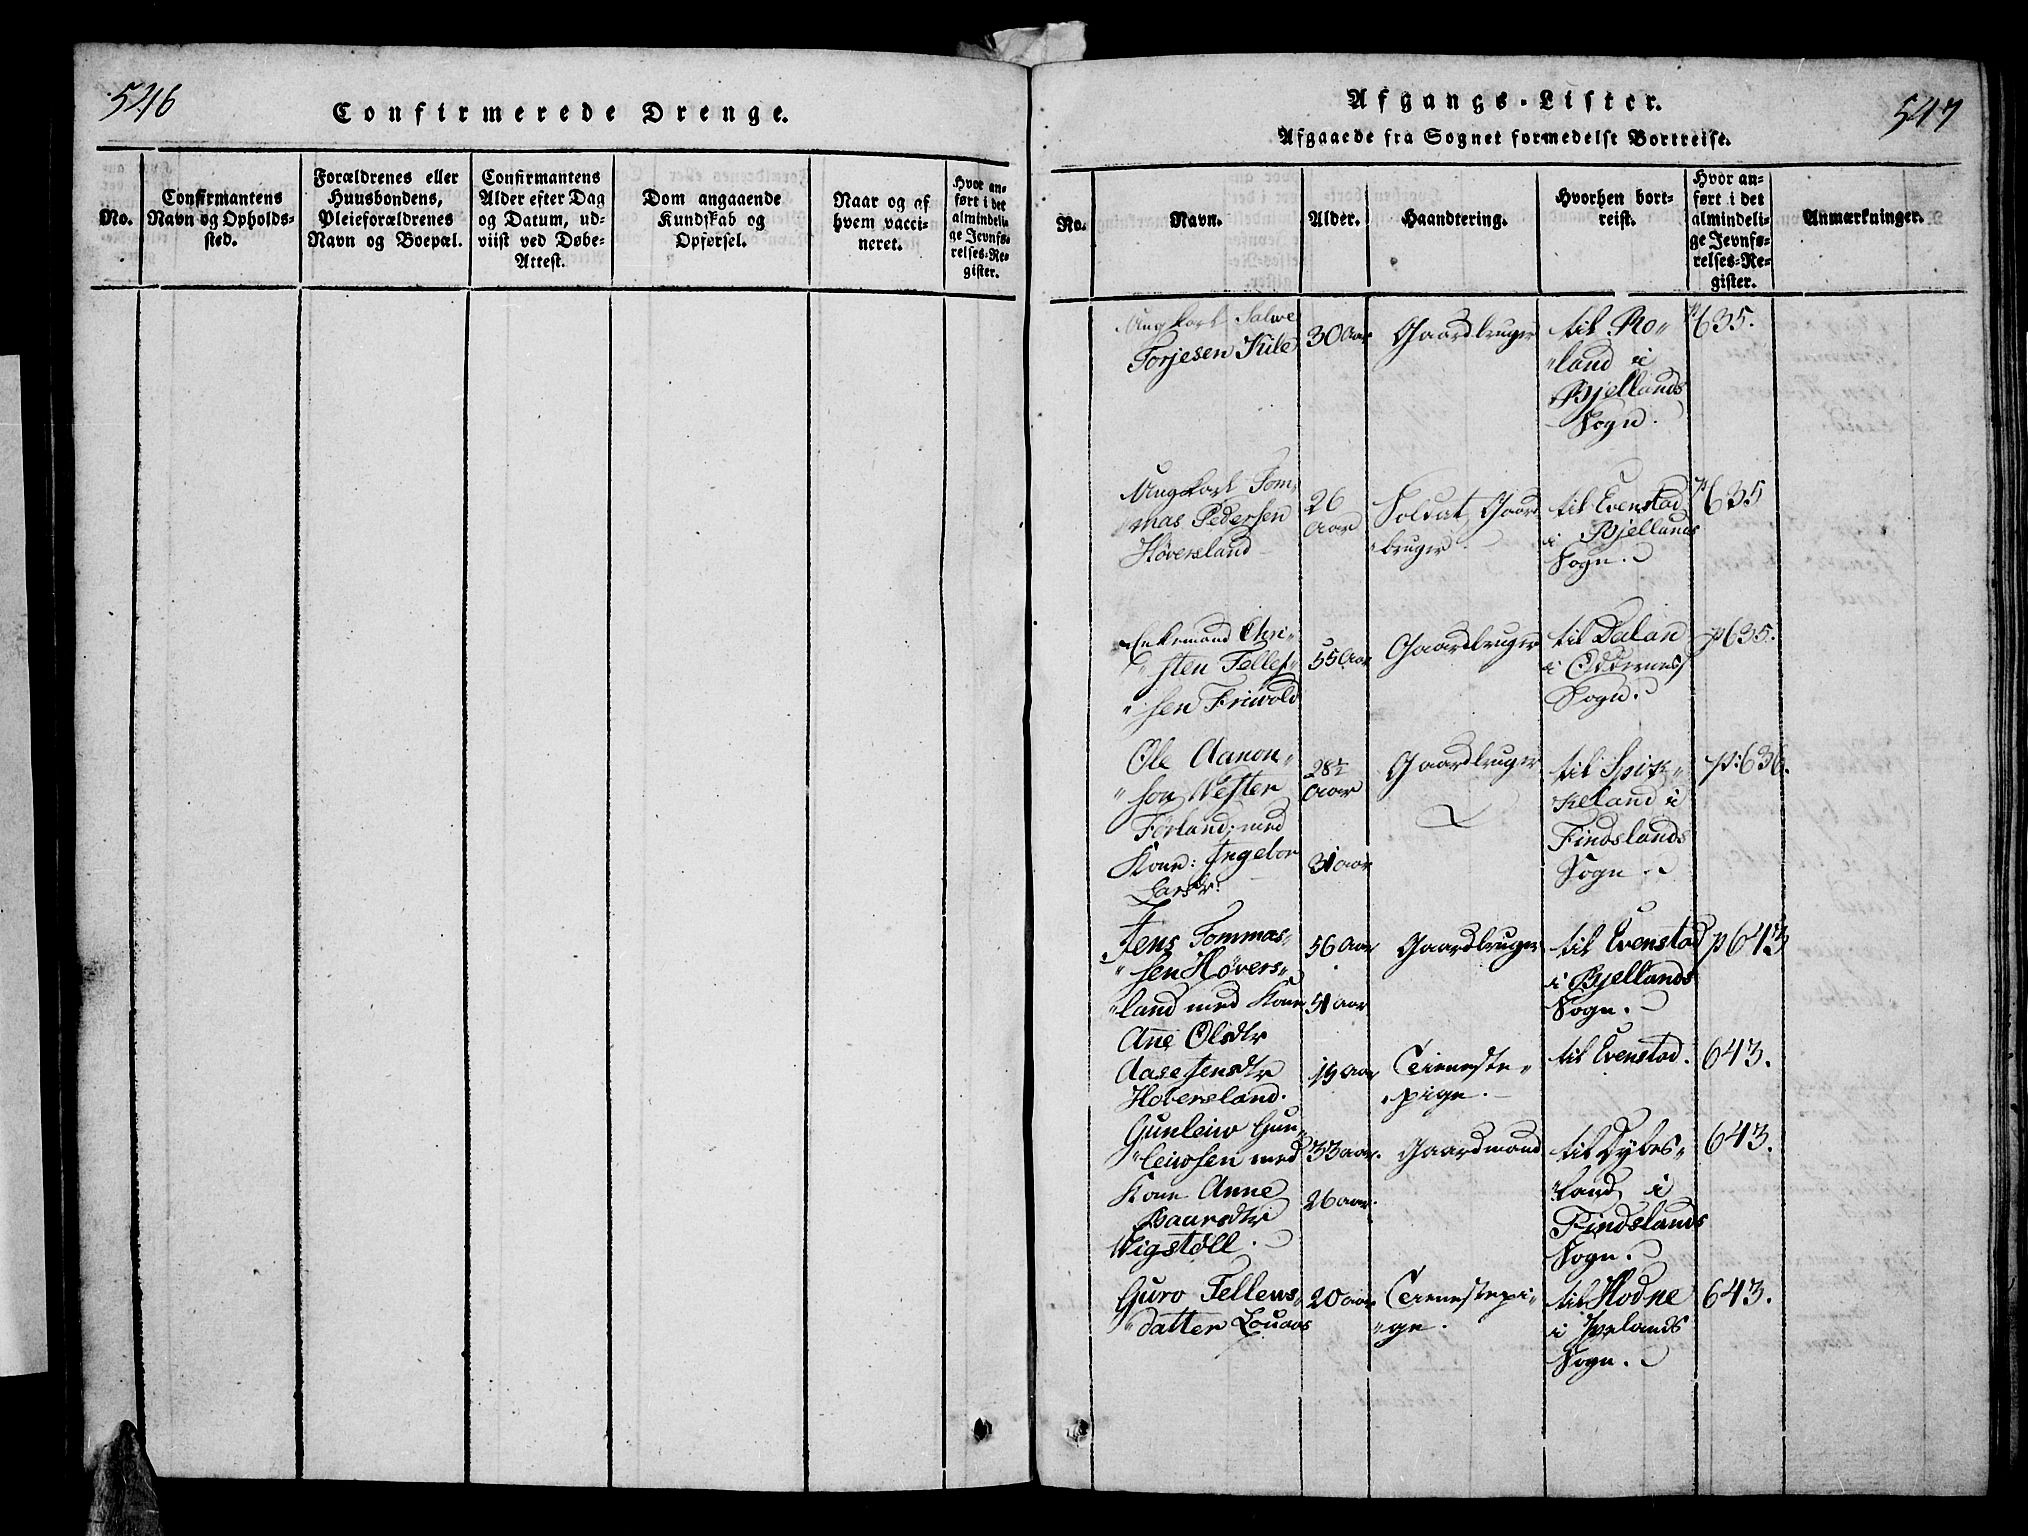 546
Confirmerede Drenge.
No.
Confirmantens
Navn og Opholds-
sted.
Forældrenes eller
Huusbondens,
Pleieforældrenes
Navn og Boepæl.
Confirmantens
Alder efter Dag
og Datum, ud-
viist ved Døbe-
Attest.
Dom angaaende
Kundskab og
Opførsel.
Naar og af
hvem vacci-
neret.
Hvor an-
ført i det
almindeli-
ge Jevnfø-
relses-Re-
gister.
Afgangs-Lister.
547
Afgaaede fra Sognet formedelst Bortreise.
No.
Navn.
Alder.
Haandtering.
Hvorhen bort-
reist.
Hvor an-
ført i det
almindeli-
ge Jevnfø-
relses-Re-
gister.
Anmærkninger.
Ungkarl Salve
Torjesen Kile
30 Aar
Gaardbruger
til Ro-
land i
Bjellands
Sogn.
p635.
Ungkarl Tom-
mas Pedersen
Höversland
26
Aar
Soldat, Gaard
bruger.
til Evenstad
i Bjellands
Sogn.
p635
Enkemand Chri-
sten Tellef-
sen Friwold
55 Aar
Gaardbruger
til Dalan
i Oddernes
Sogn.
p635.
Ole Aanon-
son Wester
Förland, med
Kone: Ingebor
Larsdr:
28½
Aar
31 aar
Gaardbruger
til Spik-
keland i
Findslands
Sogn.
p:636.
Jens Tommas-
sen Hövers-
land med Kone
Ane Olsdtr
56 Aar
51 aar
Gaardbruger
til Evenstad
i Bjellands
Sogn.
p643
Aase Jensdtr
Höversland.
19 Aar
Tieneste-
pige.
til Evenstad.
643.
Gunleiw Gun-
leiwsen med
Kone Anne
Baarsdtr
Wigstöll.
33 aar.
26 aar.
Gaardmand
til Dybes-
land i
Findslands
Sogn.
643.
Guro Tellews-
datter Louaas
20 aar
Tienestepi-
ge.
til Hodne
i Iwelands
Sogn.
643.